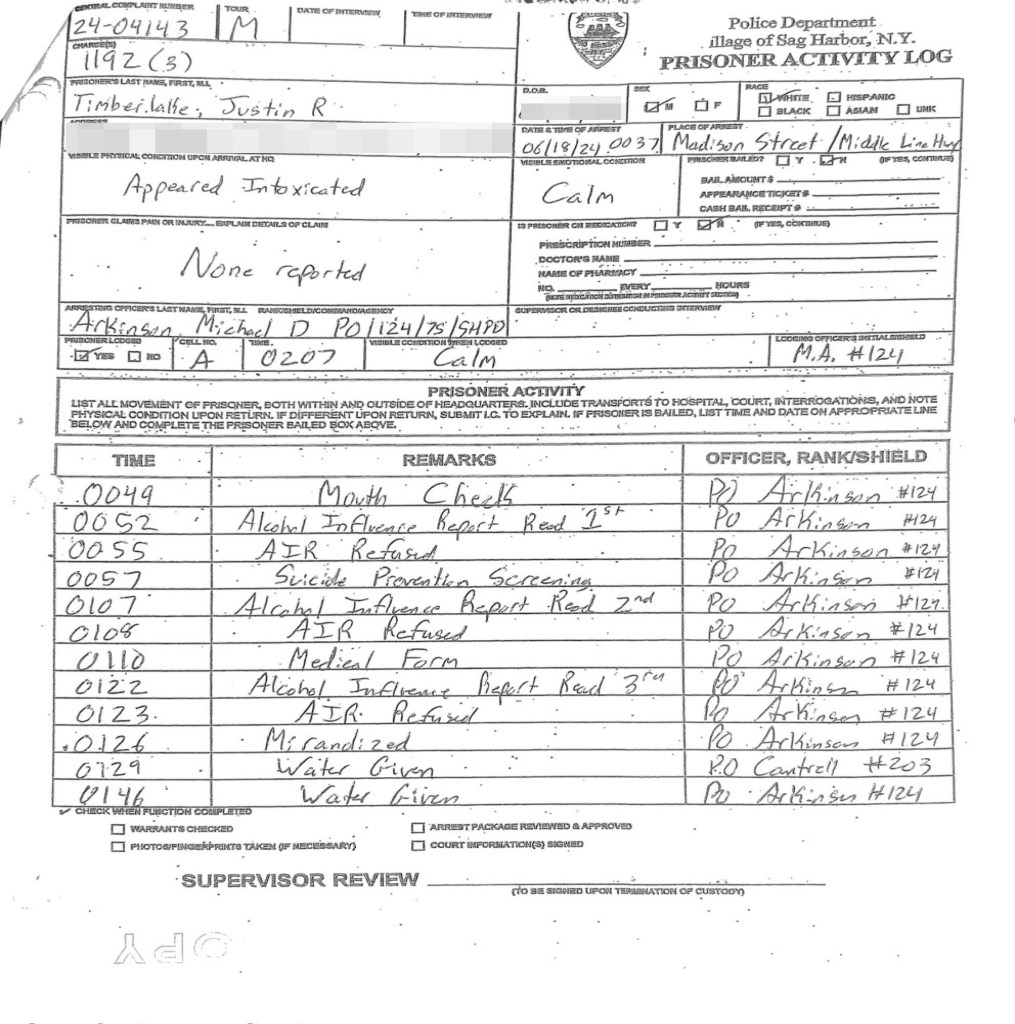 CENTRAL COMPLAINT NUMBER TOUR DATE OF INTERVIEW TIME OF INTERVIEW
24-04143 M
Police Department
illage of Sag Harbor, N.Y.
PRISONER ACTIVITY LOG
CHARGE(S)
1192 (3)
PRISONER'S LAST NAME, FIRST, M.I. D.O.B. SEX RACE
Timberlake, Justin R
M F
WHITE HISPANIC
BLACK ASIAN UNK
ADDRESS
DATE & TIME OF ARREST PLACE OF ARREST
06/18/24 0037 Madison Street / Middle Line Hwy
VISIBLE PHYSICAL CONDITION UPON ARRIVAL AT HQ
Appeared Intoxicated
VISIBLE EMOTIONAL CONDITION
Calm
PRISONER BAILED? Y N (IF YES, CONTINUE)
BAIL AMOUNT $
APPEARANCE TICKET #
CASH BAIL RECEIPT #
PRISONER CLAIMS PAIN OR INJURY.... EXPLAIN DETAILS OF CLAIM
None reported
IS PRISONER ON MEDICATION? Y N (IF YES, CONTINUE)
PRESCRIPTION NUMBER
DOCTOR'S NAME
NAME OF PHARMACY
NO. EVERY HOURS
(NOTE MEDICATION DISTRIBUTION IN PRISONER ACTIVITY SECTION)
ARRESTING OFFICER'S LAST NAME, FIRST, M.I. RANK/SHIELD/COMMAND/AGENCY
Arkinson, Michael D PO/124/75/SHPD
SUPERVISOR OR DESIGNEE CONDUCTING INTERVIEW
PRISONER LODGED CELL NO. TIME VISIBLE CONDITION WHEN LODGED LODGING OFFICER'S INITIALS/SHIELD
YES NO A 0207 Calm M.A. #124
PRISONER ACTIVITY
LIST ALL MOVEMENT OF PRISONER, BOTH WITHIN AND OUTSIDE OF HEADQUARTERS. INCLUDE TRANSPORTS TO HOSPITAL, COURT, INTERROGATIONS, AND NOTE
PHYSICAL CONDITION UPON RETURN. IF DIFFERENT UPON RETURN, SUBMIT I.C. TO EXPLAIN. IF PRISONER IS BAILED, LIST TIME AND DATE ON APPROPRIATE LINE
BELOW AND COMPLETE THE PRISONER BAILED BOX ABOVE.
TIME REMARKS OFFICER, RANK/SHIELD
0049 Mouth Check PO Arkinson #124
0052 Alcohol Influence Report Read 1st PO Arkinson #124
0055 AIR Refused PO Arkinson #124
0057 Suicide Prevention Screening PO Arkinson #124
0107 Alcohol Influence Report Read 2nd PO Arkinson #124
0108 AIR Refused PO Arkinson #124
0110 Medical Form PO Arkinson #124
0122 Alcohol Influence Report Read 3rd PO Arkinson #124
0123 AIR Refused PO Arkinson #124
0126 Mirandized PO Arkinson #124
0129 Water Given P.O Cantrell #203
0146 Water Given PO Arkinson #124
✓ CHECK WHEN FUNCTION COMPLETED
WARRANTS CHECKED ARREST PACKAGE REVIEWED & APPROVED
PHOTOS/FINGERPRINTS TAKEN (IF NECESSARY) COURT INFORMATION(S) SIGNED
SUPERVISOR REVIEW
(TO BE SIGNED UPON TERMINATION OF CUSTODY)
COPY